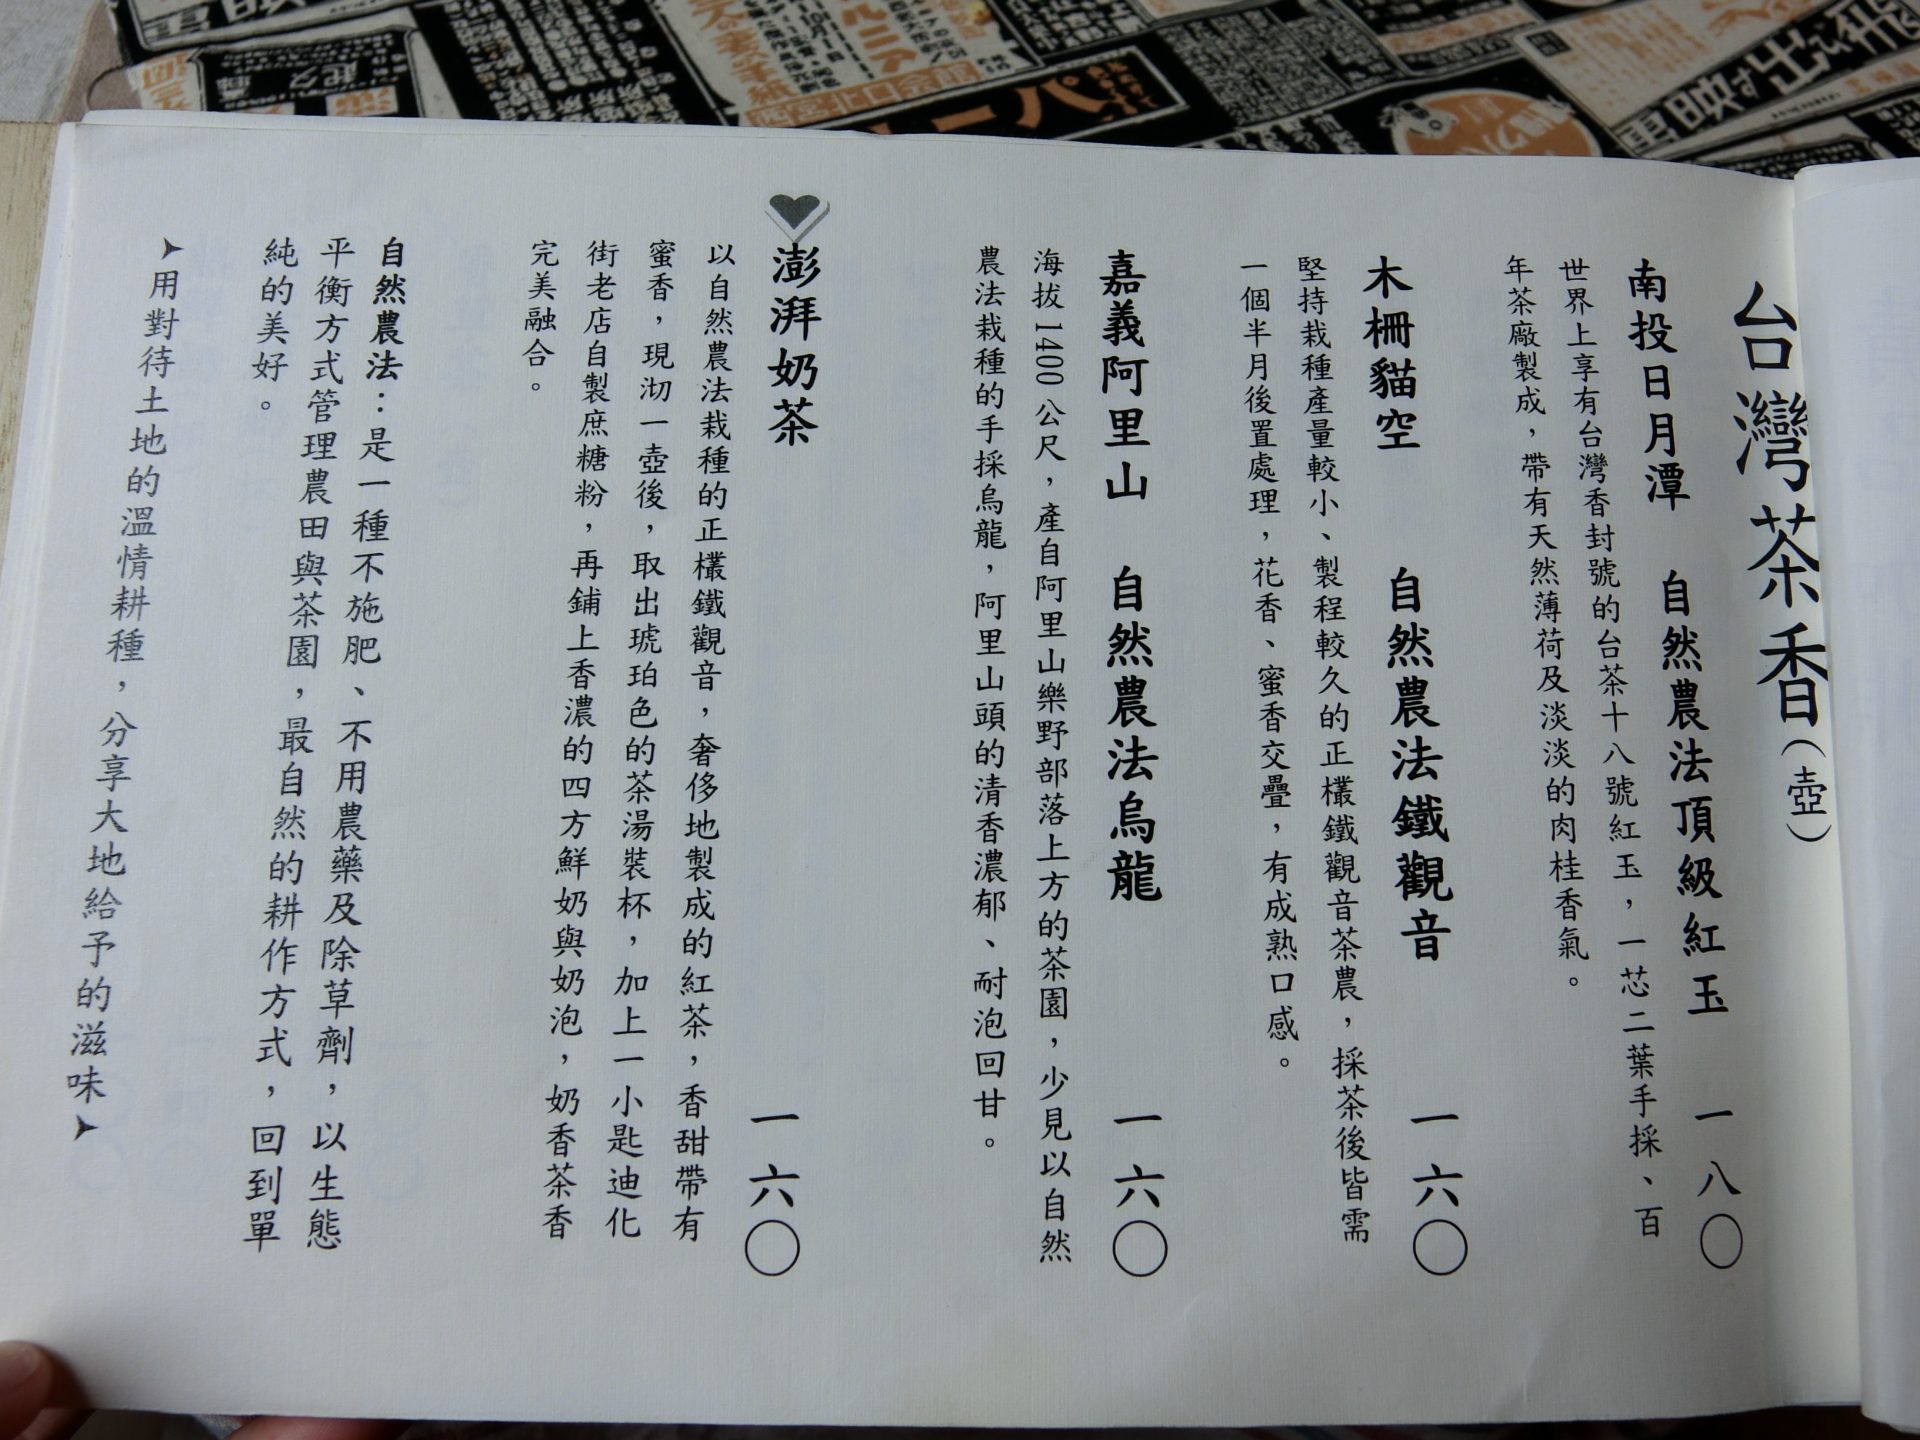 台灣茶香(壺)
南投日月潭 自然農法頂級紅玉 一八〇
世界上享有台灣香封號的台茶十八號紅玉，一芯二葉手採、百
年茶廠製成，帶有天然薄荷及淡淡的肉桂香氣。
木柵貓空 自然農法鐵觀音 一六〇
堅持栽種產量較小、製程較久的正欉鐵觀音茶農，採茶後皆需
一個半月後置處理，花香、蜜香交疊，有成熟口感。
嘉義阿里山 自然農法烏龍 一六〇
海拔1400公尺，產自阿里山樂野部落上方的茶園，少見以自然
農法栽種的手採烏龍，阿里山頭的清香濃郁、耐泡回甘。
澎湃奶茶 一六〇
以自然農法栽種的正欉鐵觀音，奢侈地製成的紅茶，香甜帶有
蜜香，現沏一壺後，取出琥珀色的茶湯裝杯，加上一小匙迪化
街老店自製庶糖粉，再鋪上香濃的四方鮮奶與奶泡，奶香茶香
完美融合。
自然農法：是一種不施肥、不用農藥及除草劑，以生態
平衡方式管理農田與茶園，最自然的耕作方式，回到單
純的美好。
用對待土地的溫情耕種，分享大地給予的滋味